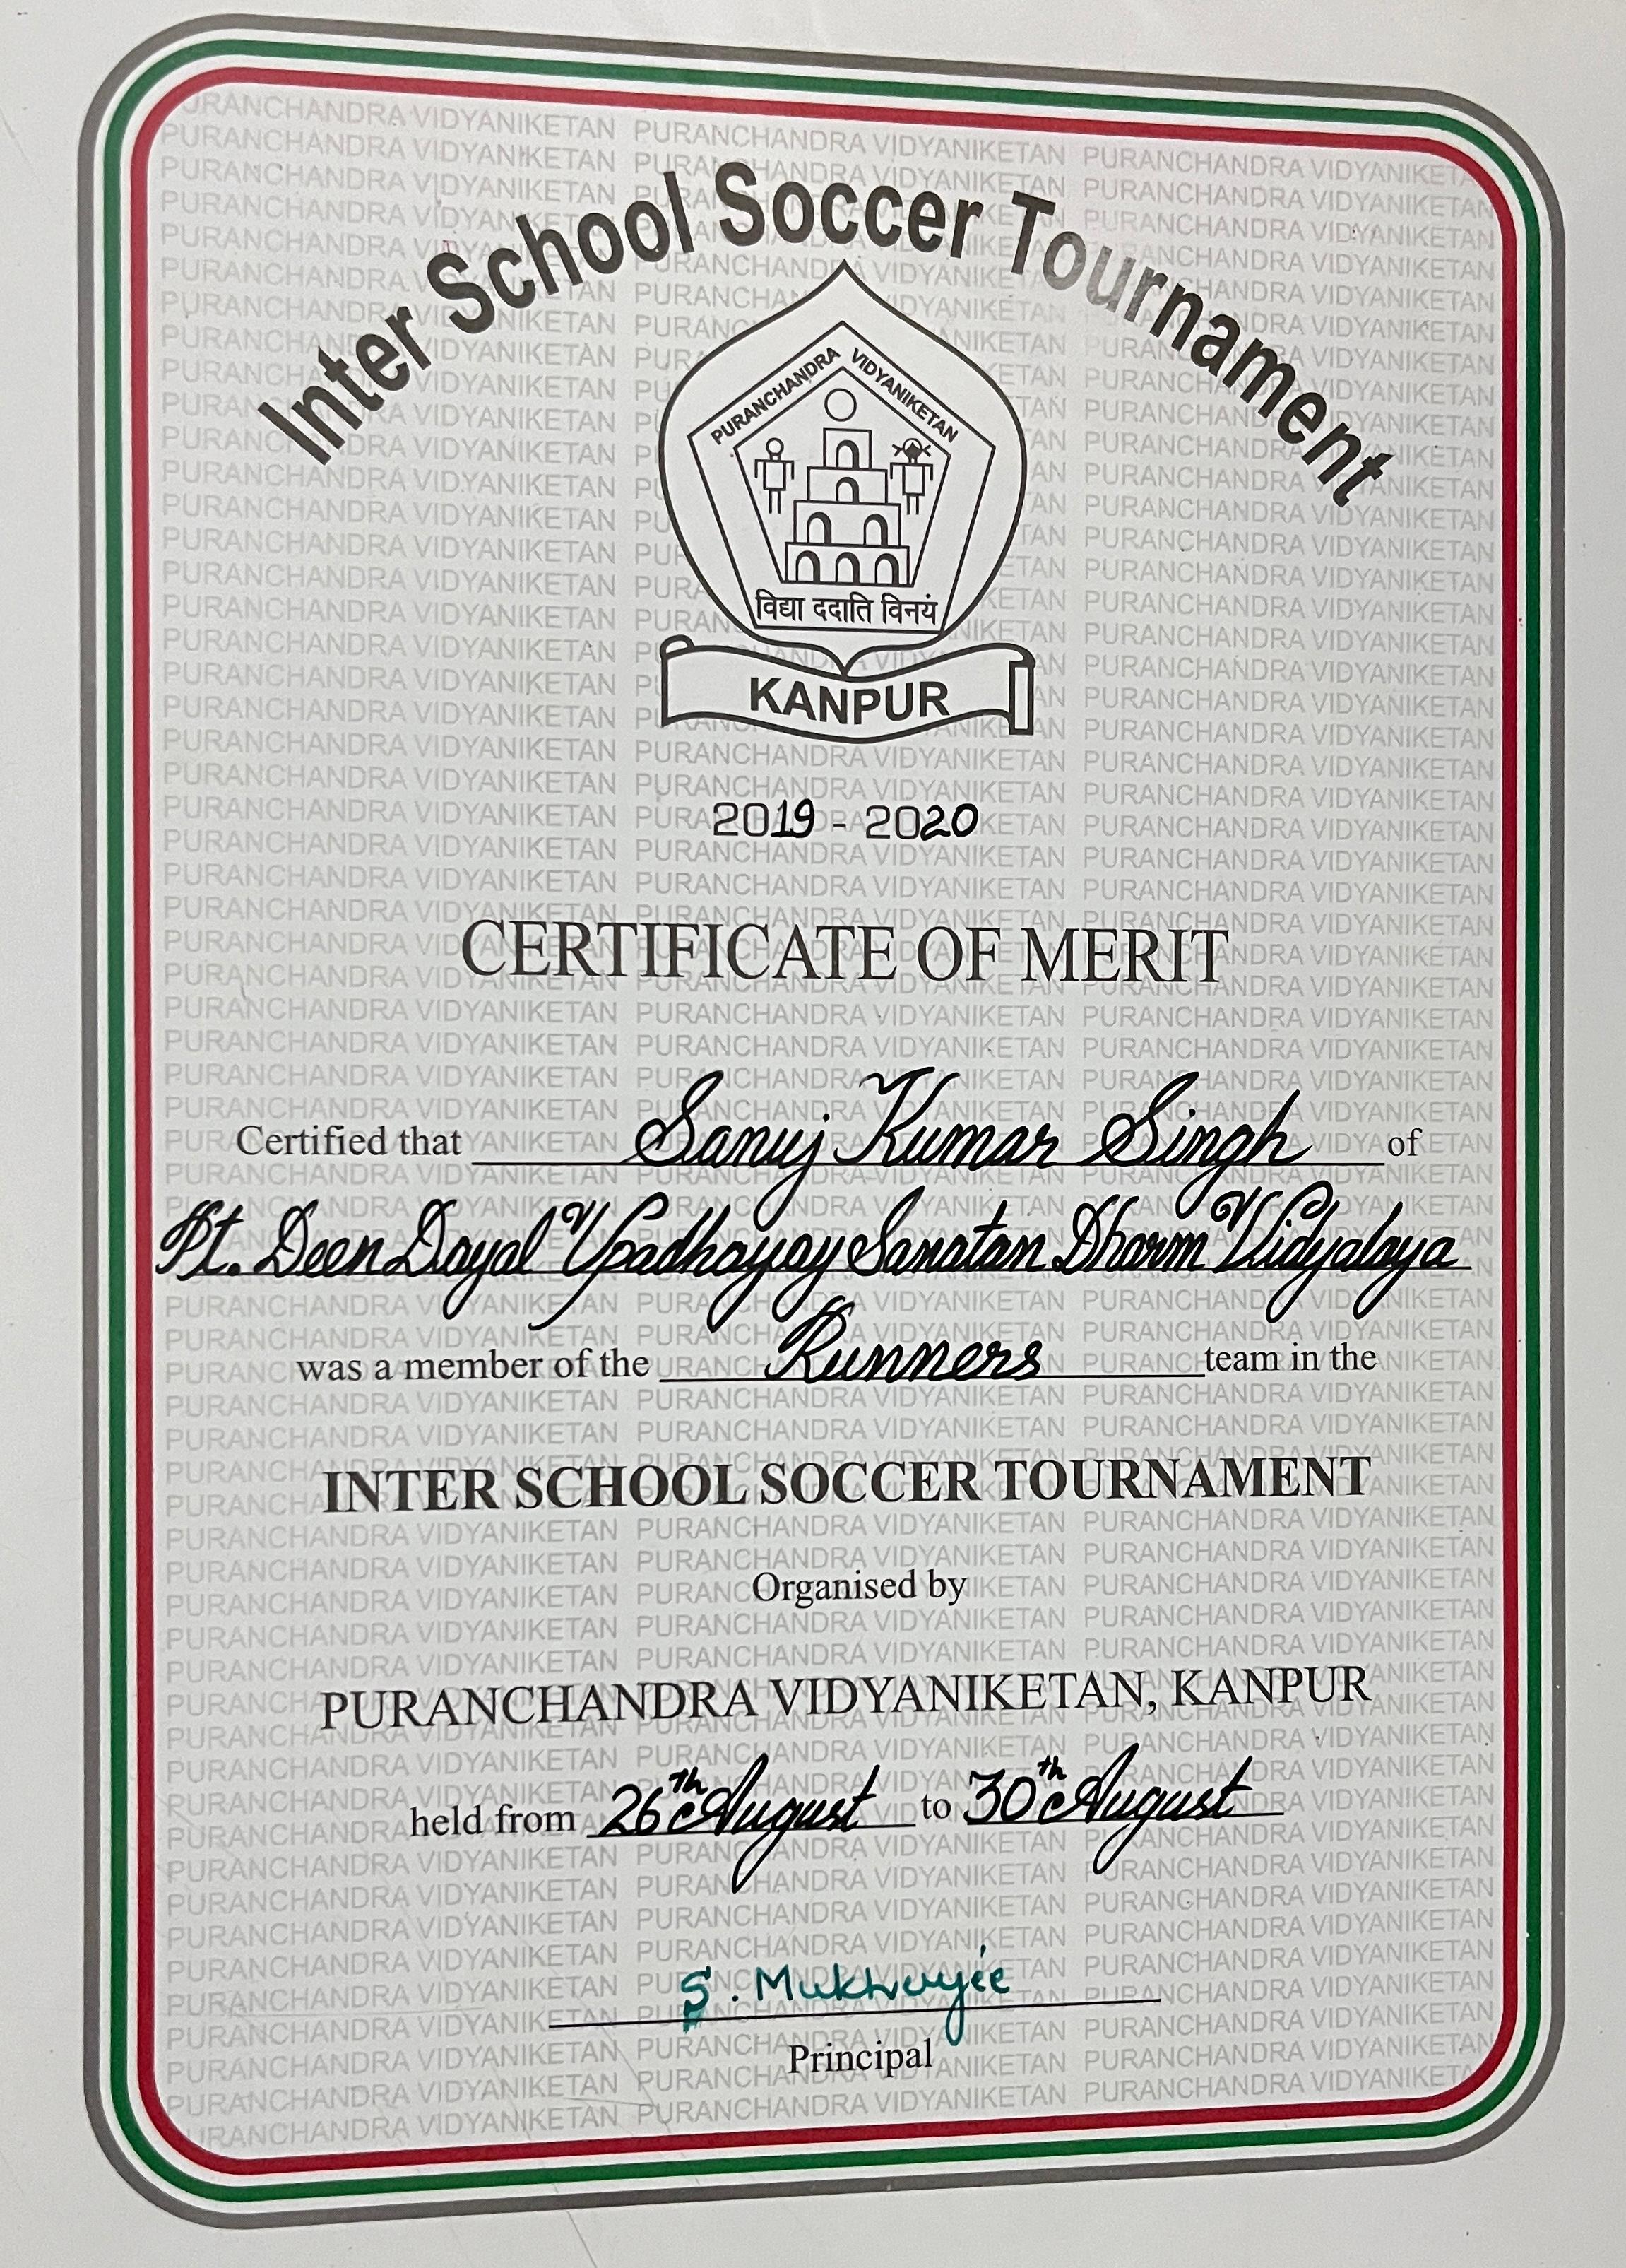 Inter School Soccer Tournament
PURANCHANDRA VIDYANIKETAN
विद्या ददाति विनयं
KANPUR
2019 - 2020
CERTIFICATE OF MERIT
Certified that Sanuj Kumar Singh of
Pt. Deen Dayal Upadhayay Sanatan Dharm Vidyalaya
was a member of the Runners team in the
INTER SCHOOL SOCCER TOURNAMENT
Organised by
PURANCHANDRA VIDYANIKETAN, KANPUR
held from 26th August to 30th August
S. Mukherjee
Principal